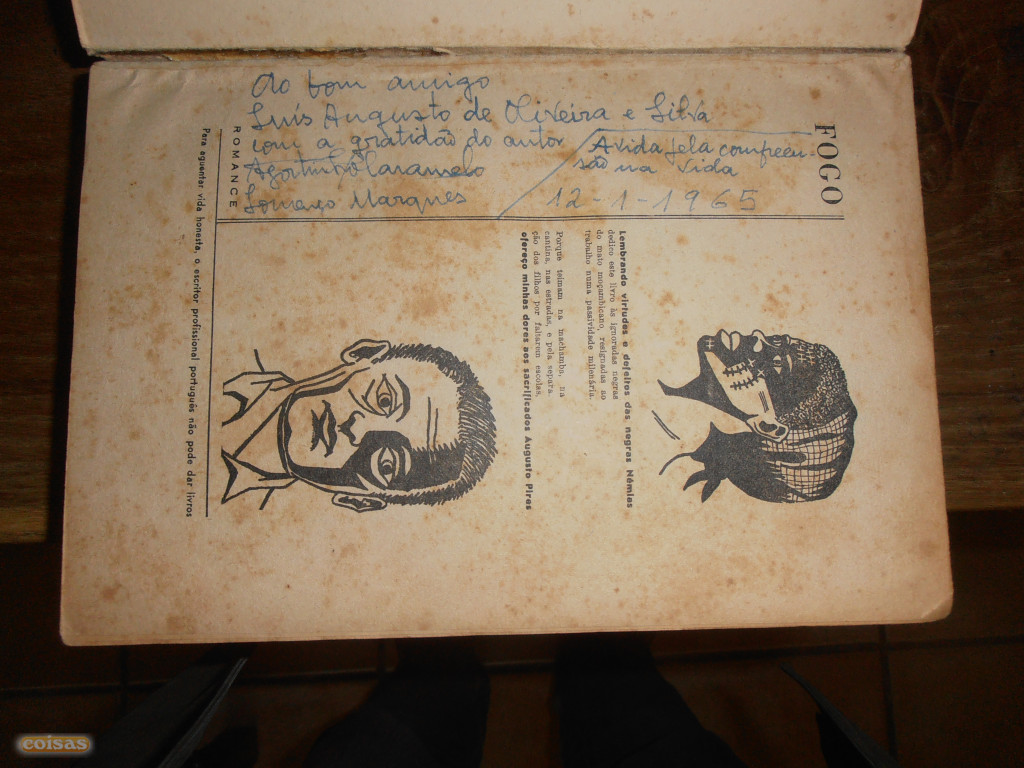 Ao bom amigo
Luís Augusto de Oliveira e Silva
com a gratidão do autor
Lourenço Marques
A vida pela compreen-
são na vida
12-1-1965
FOGO
ROMANCE
Lembrando virtudes e defeitos das negras Némias
dedico este livro às ignoradas negras
do mato moçambicano, resignadas ao
trabalho numa passividade milenária.
Porque teimam na machamba, na
cantina, nas estradas, e pela separa-
ção dos filhos por faltarem escolas,
ofereço minhas dores aos sacrificados Augusto Pires
Para aguentar vida honesta, o escritor profissional português não pode dar livros
coisas